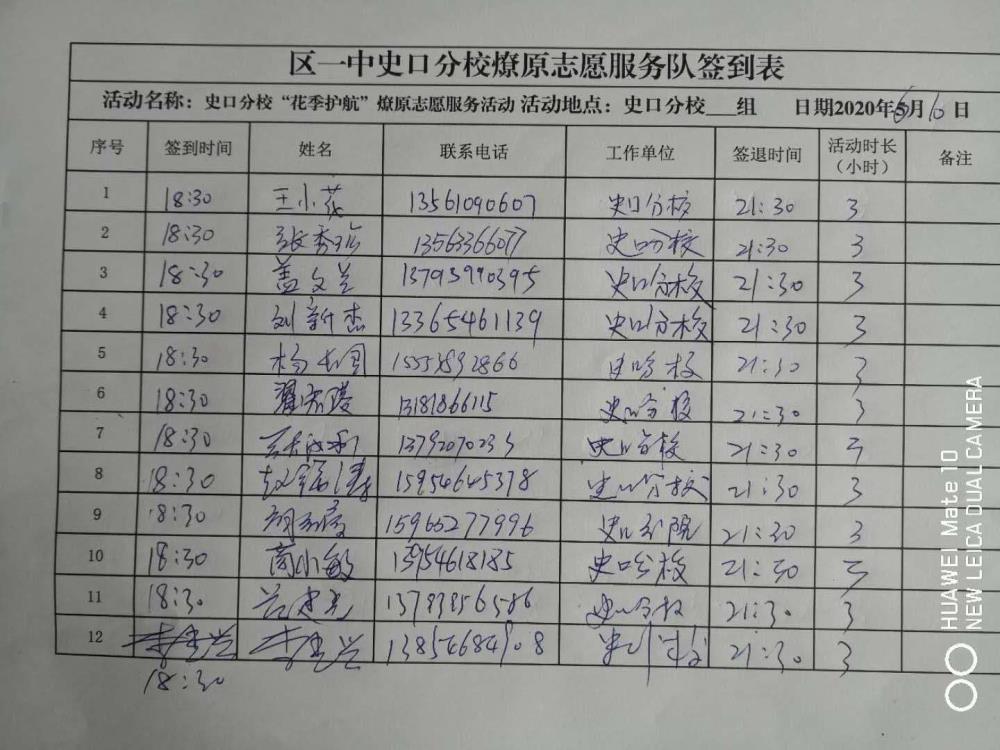 区一中史口分校燎原志愿服务队签到表
活动名称：史口分校“花季护航”燎原志愿服务活动 活动地点：史口分校___组 日期2020年6月10日
序号 签到时间 姓名 联系电话 工作单位 签退时间 活动时长（小时） 备注
1 18:30 王小花 13561090607 史口分校 21:30 3
2 18:30 张秀珍 13563366077 史口分校 21:30 3
3 18:30 盖文兰 13793990395 史口分校 21:30 3
4 18:30 刘新杰 13365461139 史口分校 21:30 3
5 18:30 杨 15553892866 史口分校 21:30 3
6 18:30 翟 13181866115 史口分校 21:30 3
7 18:30 史口分校 21:30 3
8 18:30 赵 15954645378 史口分校 21:30 3
9 18:30 胡 15965277996 史口分院 21:30 3
10 18:30 蔺小敏 13954618185 史口分校 21:30 3
11 18:30 史口分校 21:30 3
12 李 李 史口分校 21:30 3
18:30
HUAWEI Mate 10
NEW LEICA DUAL CAMERA